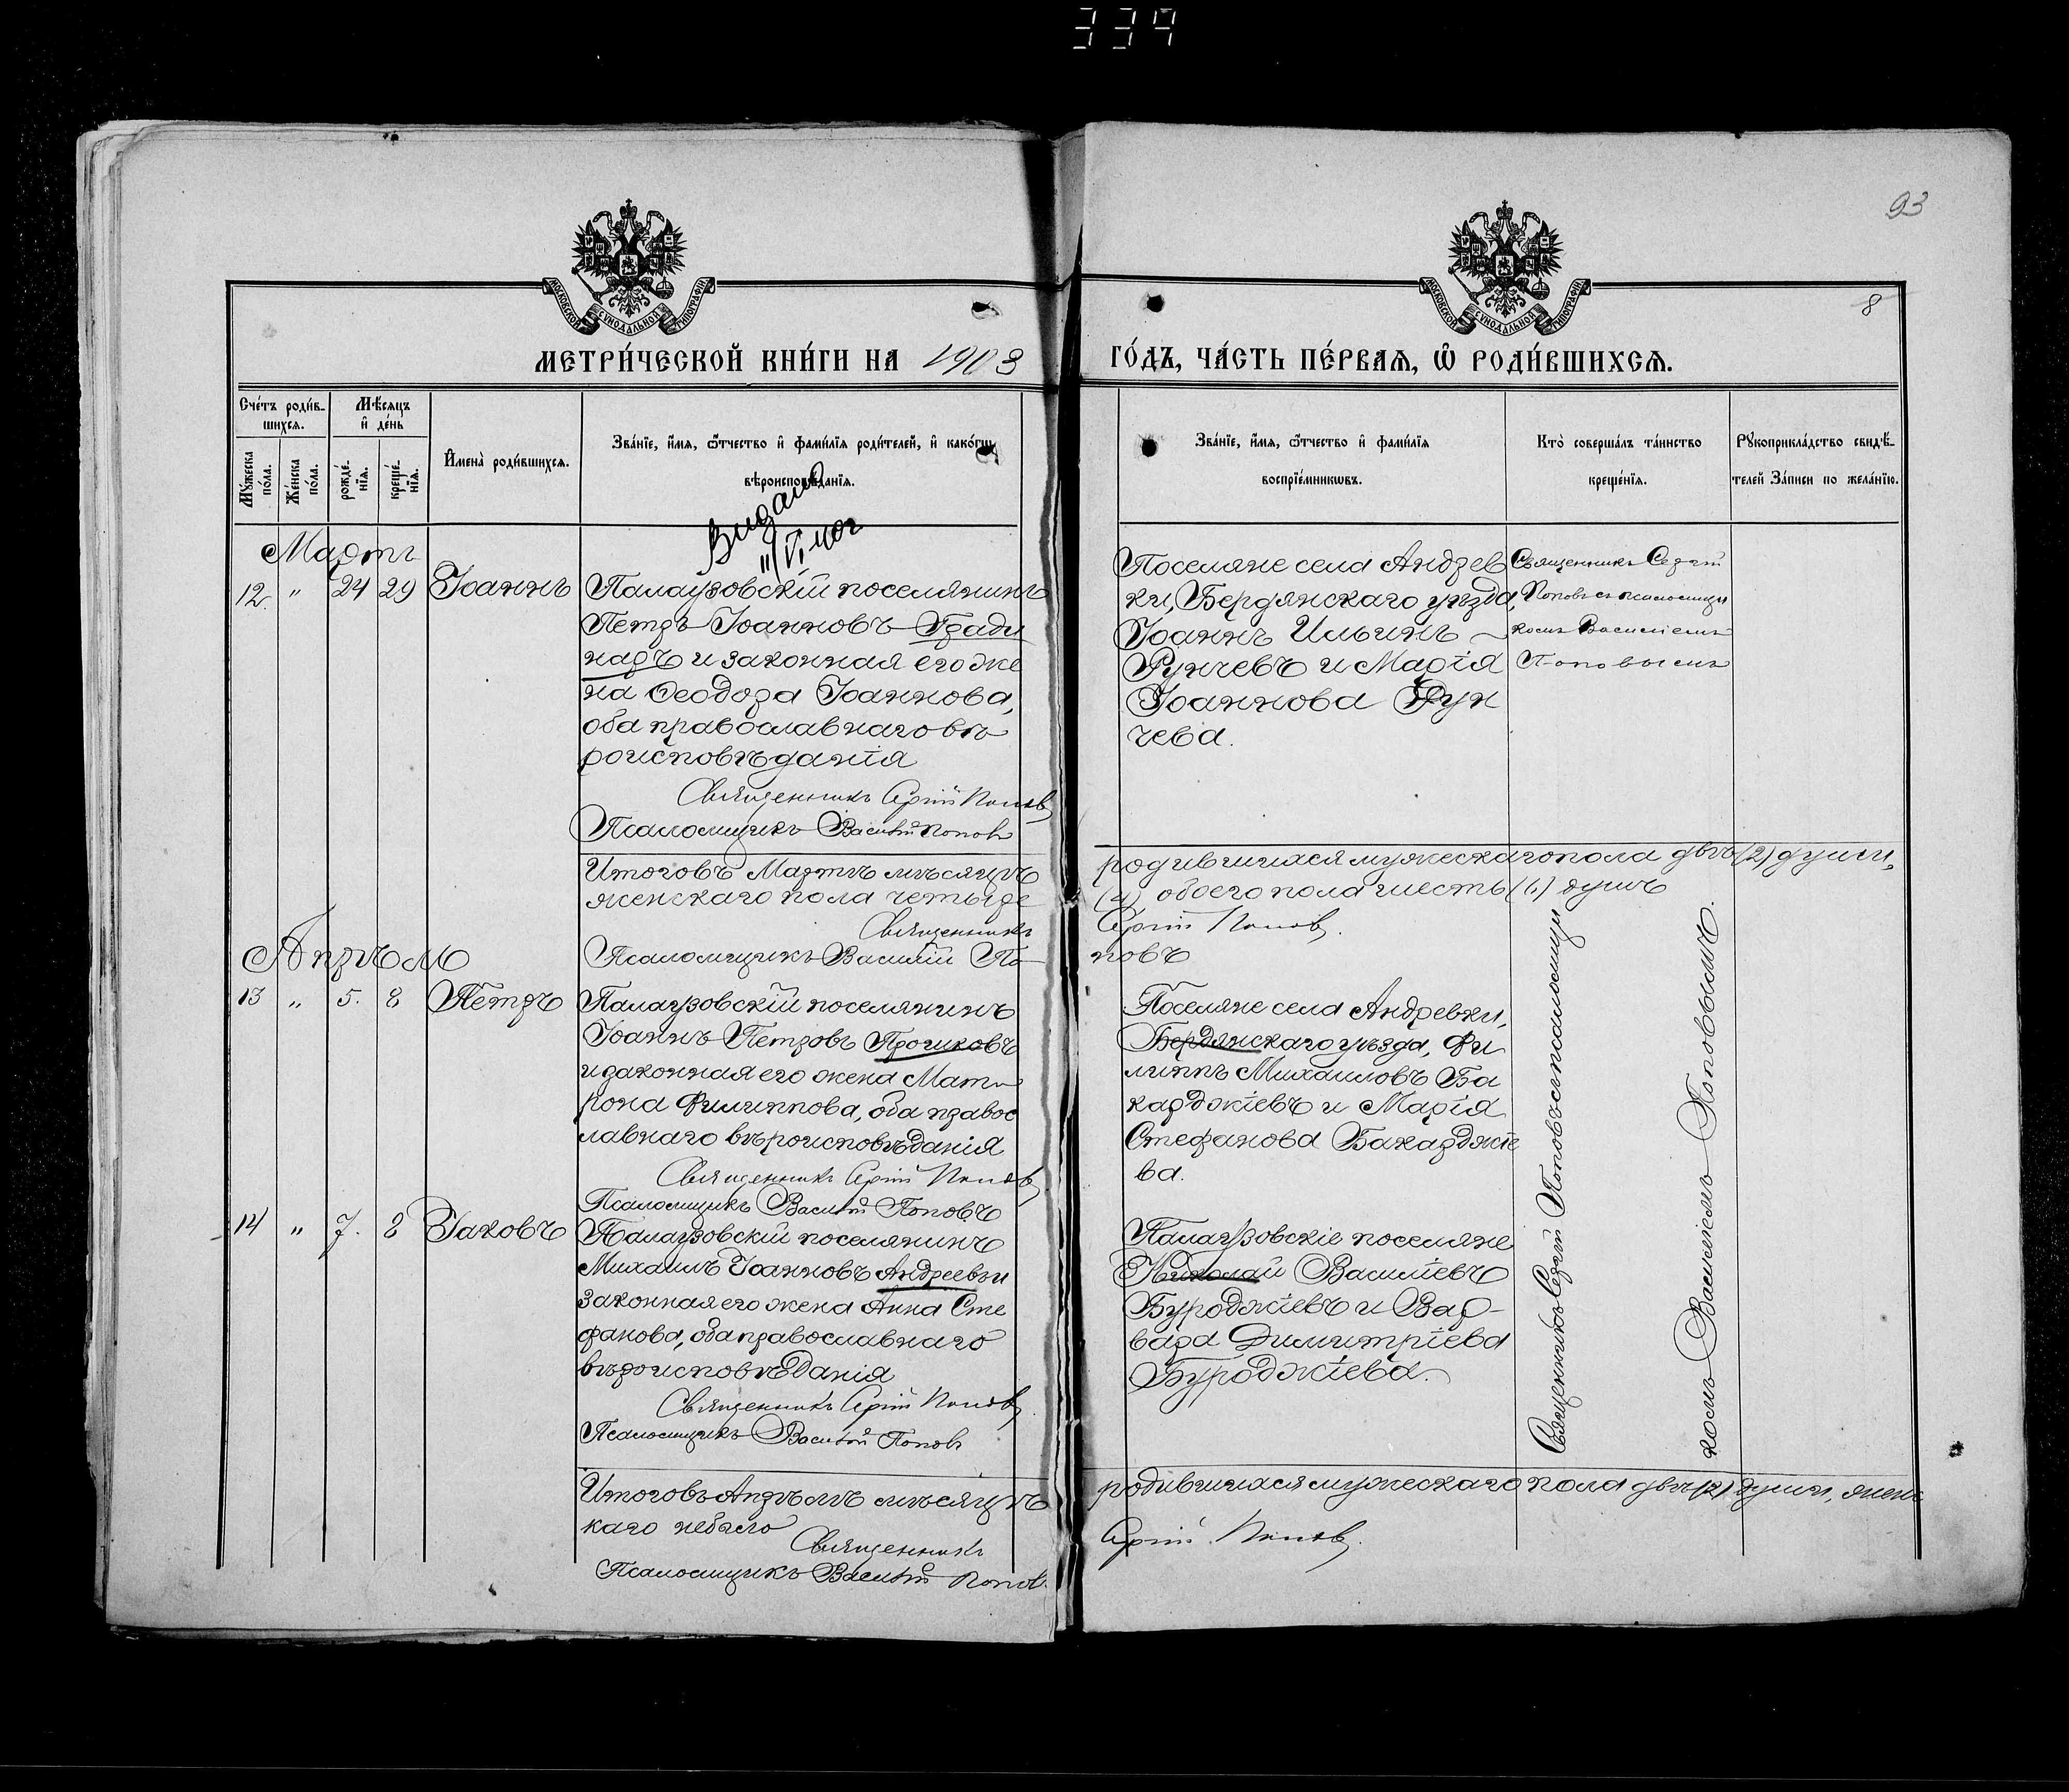 339
93
МОСКОВСКОЙ СУНОДАЛЬНОЙ ТИПОГРАФІИ
МОСКОВСКОЙ СУНОДАЛЬНОЙ ТИПОГРАФІИ
8
МЕТРИ́ЧЕСКОЙ КНИ́ГИ НА 1903
ГО́ДЪ, ЧА́СТЬ ПЕ́РВАѦ, Ѡ РОДИ́ВШИХСѦ.
Сче́тъ роди́в-
шихсѧ.
Мꙋ́жеска
по́ла.
Же́нска
по́ла.
Мѣ́сѧцъ
и҆ де́нь
рожде́-
нїѧ.
креще́-
нїѧ.
И҆мена̀ роди́вшихсѧ.
Зва́нїе, и҆́мѧ, ѻ҆́тчество и҆ фами́лїѧ роди́телей, и҆ како́гѡ
вѣроисповѣ́данїѧ.
Зва́нїе, и҆́мѧ, ѻ҆́тчество и҆ фами́лїѧ
воспрїе́мникѡвъ.
Кто̀ соверша́лъ та́инство
креще́нїѧ.
Рꙋкоприкла́дство свидѣ́-
телей за́писи по жела́нїю.
Мартъ
12. " 24 29 Іоаннъ
Палаузовскій поселянинъ
Петръ Іоанновъ Гради
наръ и законная его же
на Ѳеодора Іоаннова,
оба православнаго вѣ
роисповѣданія
Священникъ Сергій Поповъ
Псаломщикъ Василій Поповъ
Поселяне села Андреев
ки, Бердянскаго уѣзда,
Іоаннъ Ильинъ
Рунчевъ и Марія
Іоаннова Рун
чева.
Священникъ Сергій
Поповъ съ псаломщи
комъ Василіемъ
Поповымъ
Итого въ Мартѣ мѣсяцѣ родившихся мужескаго пола двѣ (2) души,
женскаго пола четыре (4), обоего пола шесть (6) душъ
Священникъ Сергій Поповъ.
Псаломщикъ Василій По-
повъ
Апрѣль
13 " 5. 8 Петръ
Палаузовскій поселянинъ
Іоаннъ Петровъ
и законная его жена Мат
рона Филиппова, оба правос
лавнаго вѣроисповѣданія
Священникъ Сергій Поповъ
Псаломщикъ Василій Поповъ
Поселяне села Андреевки,
Бердянскаго уѣзда, Фи
липпъ Михаиловъ Ба
карджіевъ и Марія
Стефанова Бакарджіе
ва.
14 " 7. 8 Іаковъ
Палаузовскій поселянинъ
Михаилъ Іоанновъ Андреевъ и
законная его жена Анна Сте
фанова, оба православнаго
вѣроисповѣданія
Священникъ Сергій Поповъ
Псаломщикъ Василій Поповъ
Палаузовскіе поселяне
Николай Василіевъ
Буроджіевъ и Вар-
вара Димитріева
Буроджіева.
Священникъ Сергій Поповъ съ псаломщи
комъ Василіемъ Поповымъ.
Итого въ Апрѣлѣ мѣсяцѣ родившихся мужескаго пола двѣ (2) души, женс
каго не было
Священникъ Сергій Поповъ.
Псаломщикъ Василій Поповъ